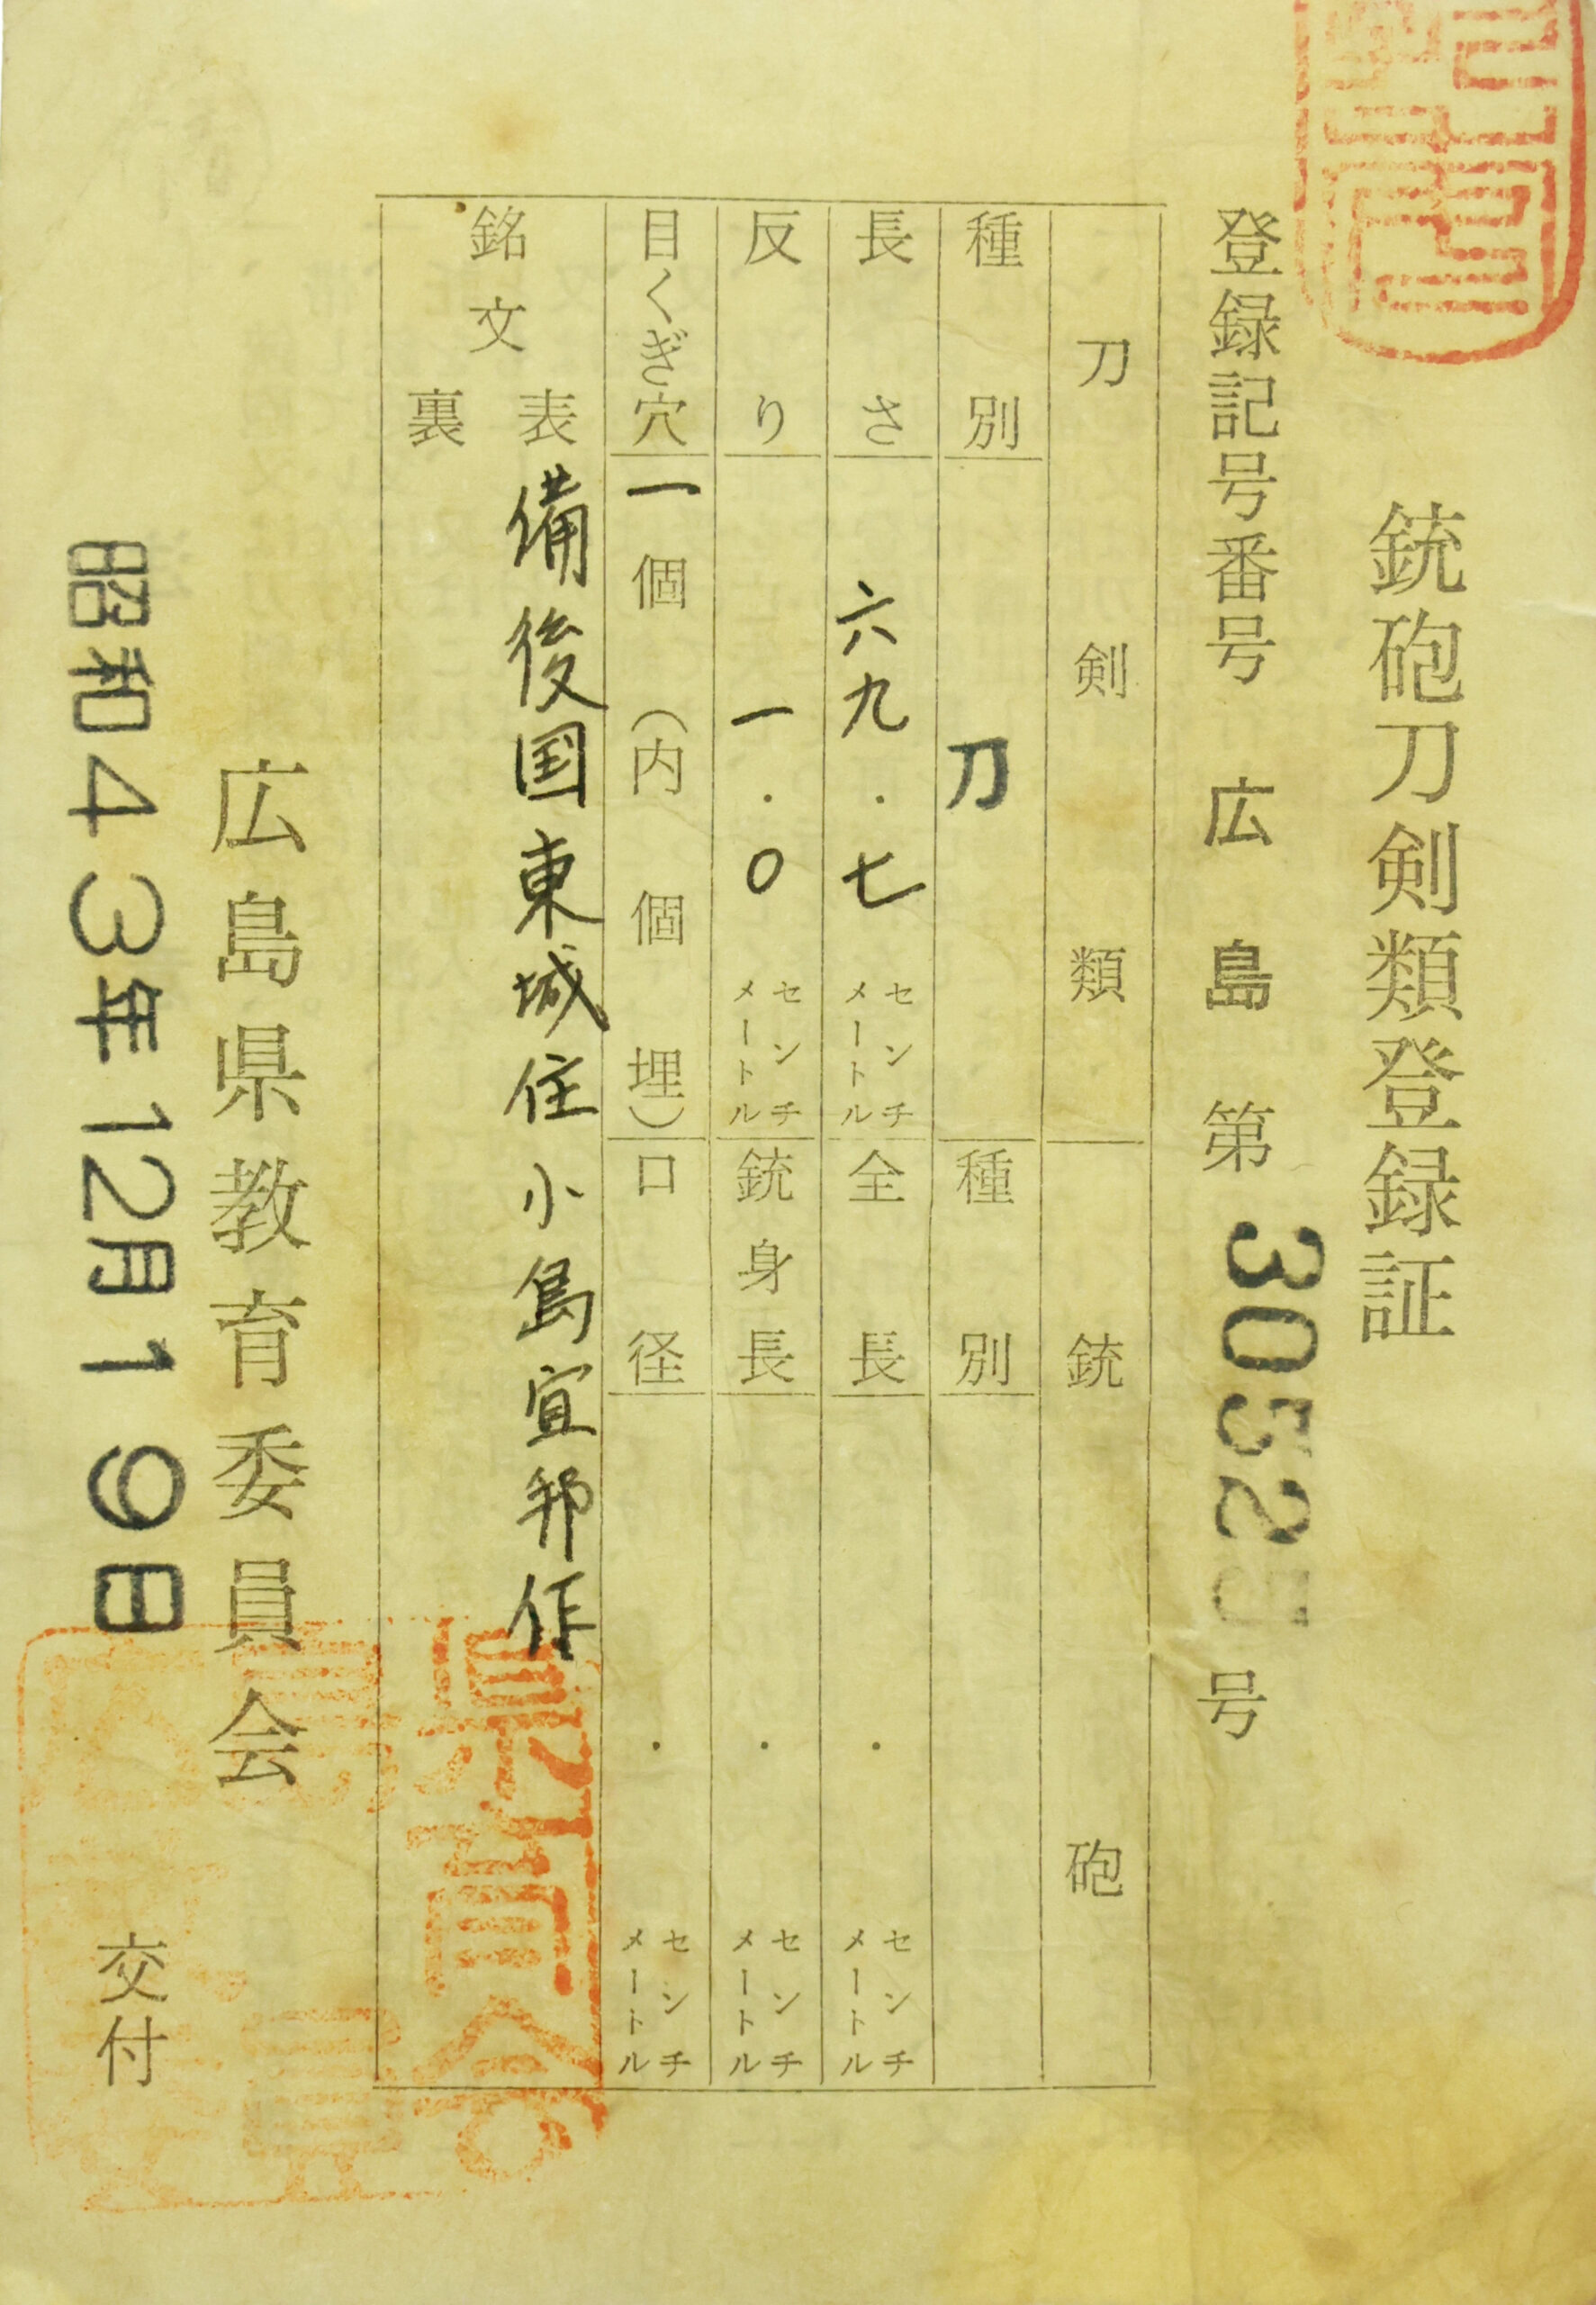 銃砲刀剣類登録証
登録記号番号 広島 第 30525 号
刀剣類 銃砲
種別 刀 種別
長さ 六九.七 センチメートル 全長 . センチメートル
反り 一.0 センチメートル 銃身長 . センチメートル
目くぎ穴 一個(内 個埋) 口径 . センチメートル
銘文
表 備後国東城住小島宣邦作
裏
広島県教育委員会
昭和43年12月19日 交付